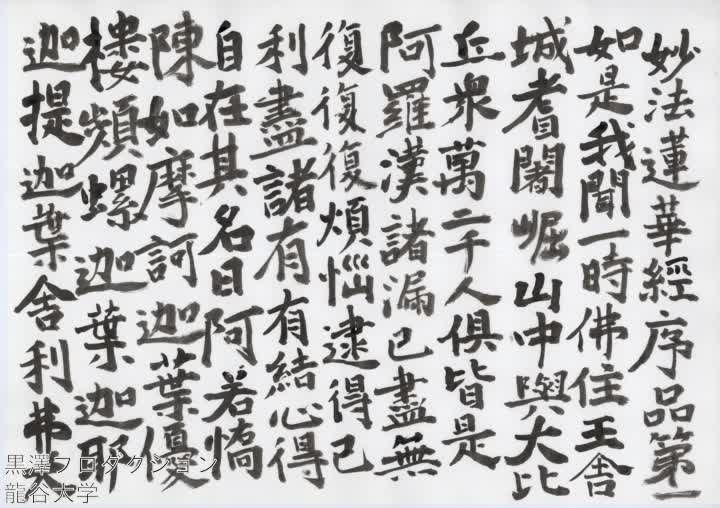 妙法蓮華經序品第一
如是我聞一時佛住王舍
城耆闍崛山中與大比
丘衆萬二千人俱皆是
阿羅漢諸漏已盡無
復復復煩惱逮得己
利盡諸有有結心得
自在其名曰阿若憍
陳如摩訶迦葉優
樓頻螺迦葉迦耶
迦提迦葉舍利弗大
黒澤プロダクション
龍谷大学